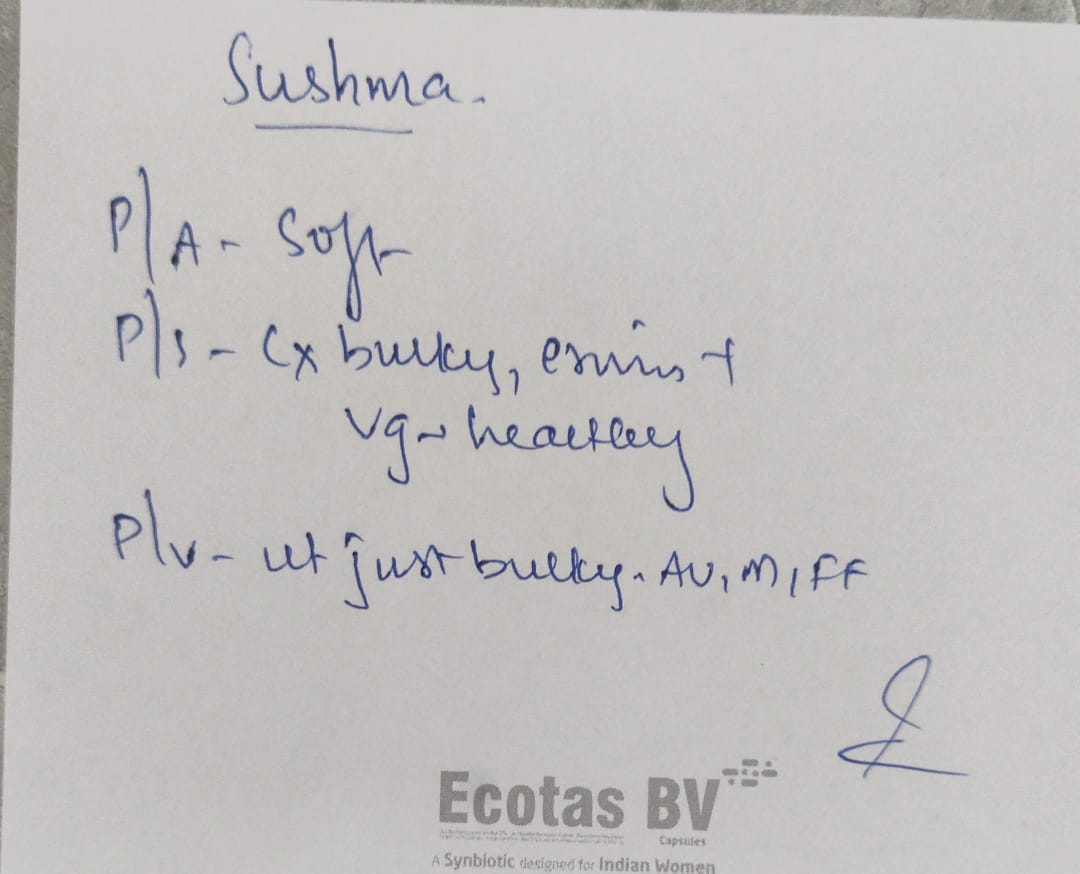 Sushma.
P/A - Soft
P/S - Cx bulky, +
Vg - healthy
P/V - ut just bulky. AV, M, FF
Ecotas BV
Capsules
A Synbiotic designed for Indian Women